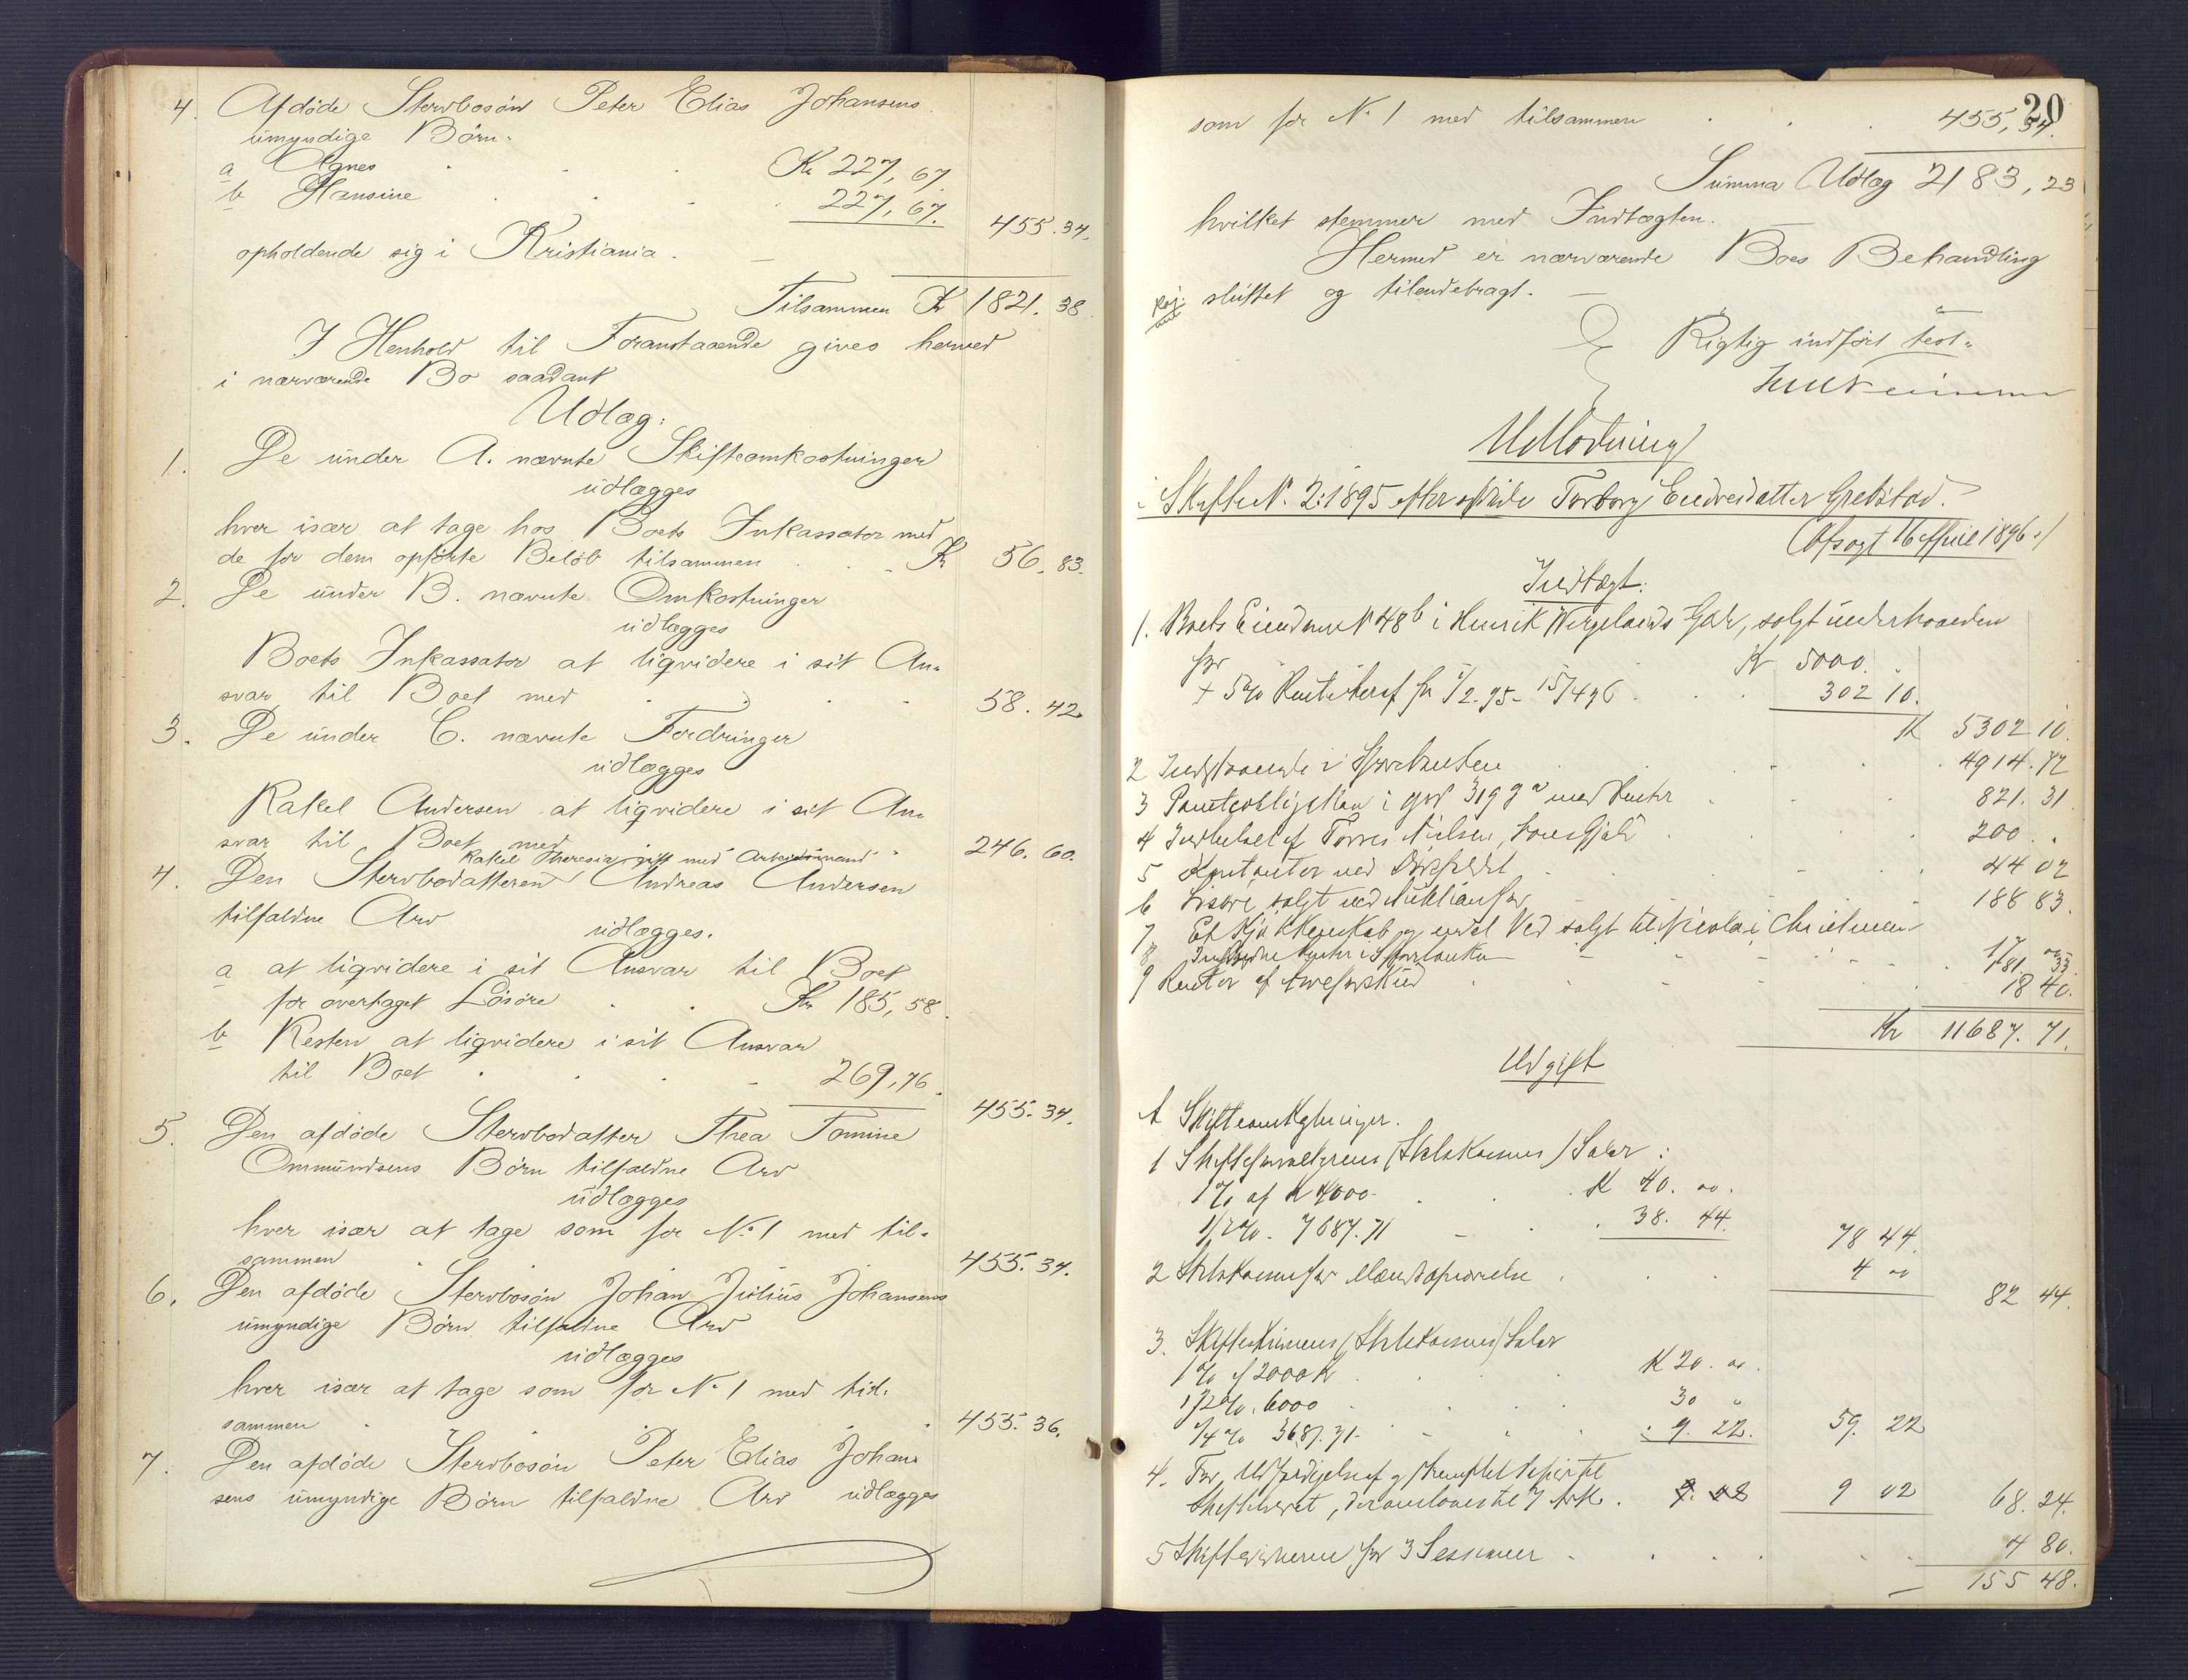 4. Afdøde Stervbosøn Peter Elias Johansens
umyndige Børn:
a Agnes Kr 227,67.
b Hansine 227,67. 455.34.
opholdende sig i Kristiania.
Tilsammen Kr 1821.38.
I Henhold til Foranstaaende gives herved
i nærværende Bo saadant
Udlæg:
1. De under A. nævnte Skifteomkostninger
udlægges
hver især at tage hos Boets Inkassator med
de for dem opførte Beløb tilsammen Kr 56.83.
2. De under B. nævnte Omkostninger
udlægges
Boets Inkassator at liqvidere i sit An-
svar til Boet med 58.42
3. De under C. nævnte Fordringer
udlægges
Rakel Andersen at liqvidere i sit An-
svar til Boet med 246.60.
Rakel Theresia gift med Arbeidsmand
4. Den Stervbodatteren Andreas Andersen
tilfaldne Arv
udlægges.
a at liqvidere i sit Ansvar til Boet
for overtaget Løsøre Kr 185,58.
b Resten at liqvidere i sit Ansvar
til Boet 269,76.
455.34.
5. Den afdøde Stervbodatter Thea Tomine
Ommundsens Børn tilfaldne Arv
udlægges
hver især at tage som for No 1 med til-
sammen 455.34.
6. Den afdøde Stervbosøn Johan Julius Johansens
umyndige Børn tilfaldne Arv
udlægges
hver især at tage som for No 1 med til-
sammen 455.36.
7. Den afdøde Stervbosøn Peter Elias Johan-
sens umyndige Børn tilfaldne Arv udlægges
20
som for No 1 med tilsammen 455,34.
Summa Udlæg 2183,23
hvilket stemmer med Indtægten.
Hermed er nærværende Boes Behandling
sluttet og tilendebragt.
Rigtig indført test.
Udlodning
i Skifte No. 2:1895 efter afdøde Torborg Endresdatter Grebstad.
(Afsagt 16 April 1896.)
Indtægt:
1. Boets Eiendom No 48b i Henrik Wergelands Gade, solgt underhaanden
for K 5000.
+ 5% Rente heraf fra 1/2.95 - 15/4 96 302 10.
K 5302 10.
2 Indestaaende i Sparebanken 4914.72
3 Panteobligation i 319 med Renter 821.31
4 Tørres Nielsen, 200 .
5 Kontanter ved Dødsfaldet 44 02
6 Løsøre solgt ved Auktion for 188 83.
7 Et Kjøkkenskab og endel Ved solgt til Nicolai Christensen 17 00
8 Renter i Sparebanken 181 33.
9 Renter af Arveforskud 18 40.
Kr 11687.71.
Udgift
A Skifteomkostninger.
1 Skifteforvalterens Salær:
1% af K 4000 K 40. 00.
1/2% - 7687.71 38. 44.
78 44.
2 4 00
82 44.
3. Salær
1% af 2000 K K 20. 00.
1/2% . 6000 30 "
1/4% 3687.71 9. 22. 59. 22
4. For Udfærdigelse af
9 02 68.24.
5 Skiftevidnerne for 3 Sessioner 4 80.
155 48.